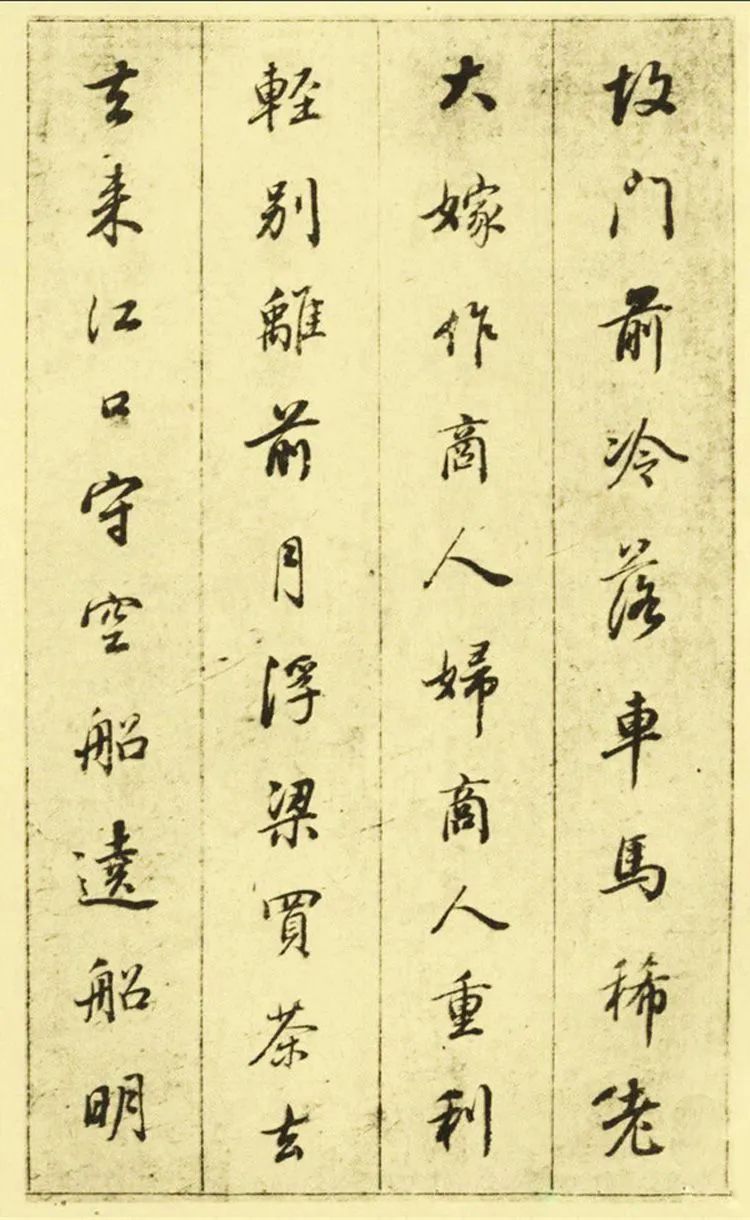 故门前冷落車馬稀老
大嫁作商人婦商人重利
輕別離前月浮梁買茶去
去来江口守空船遶船明